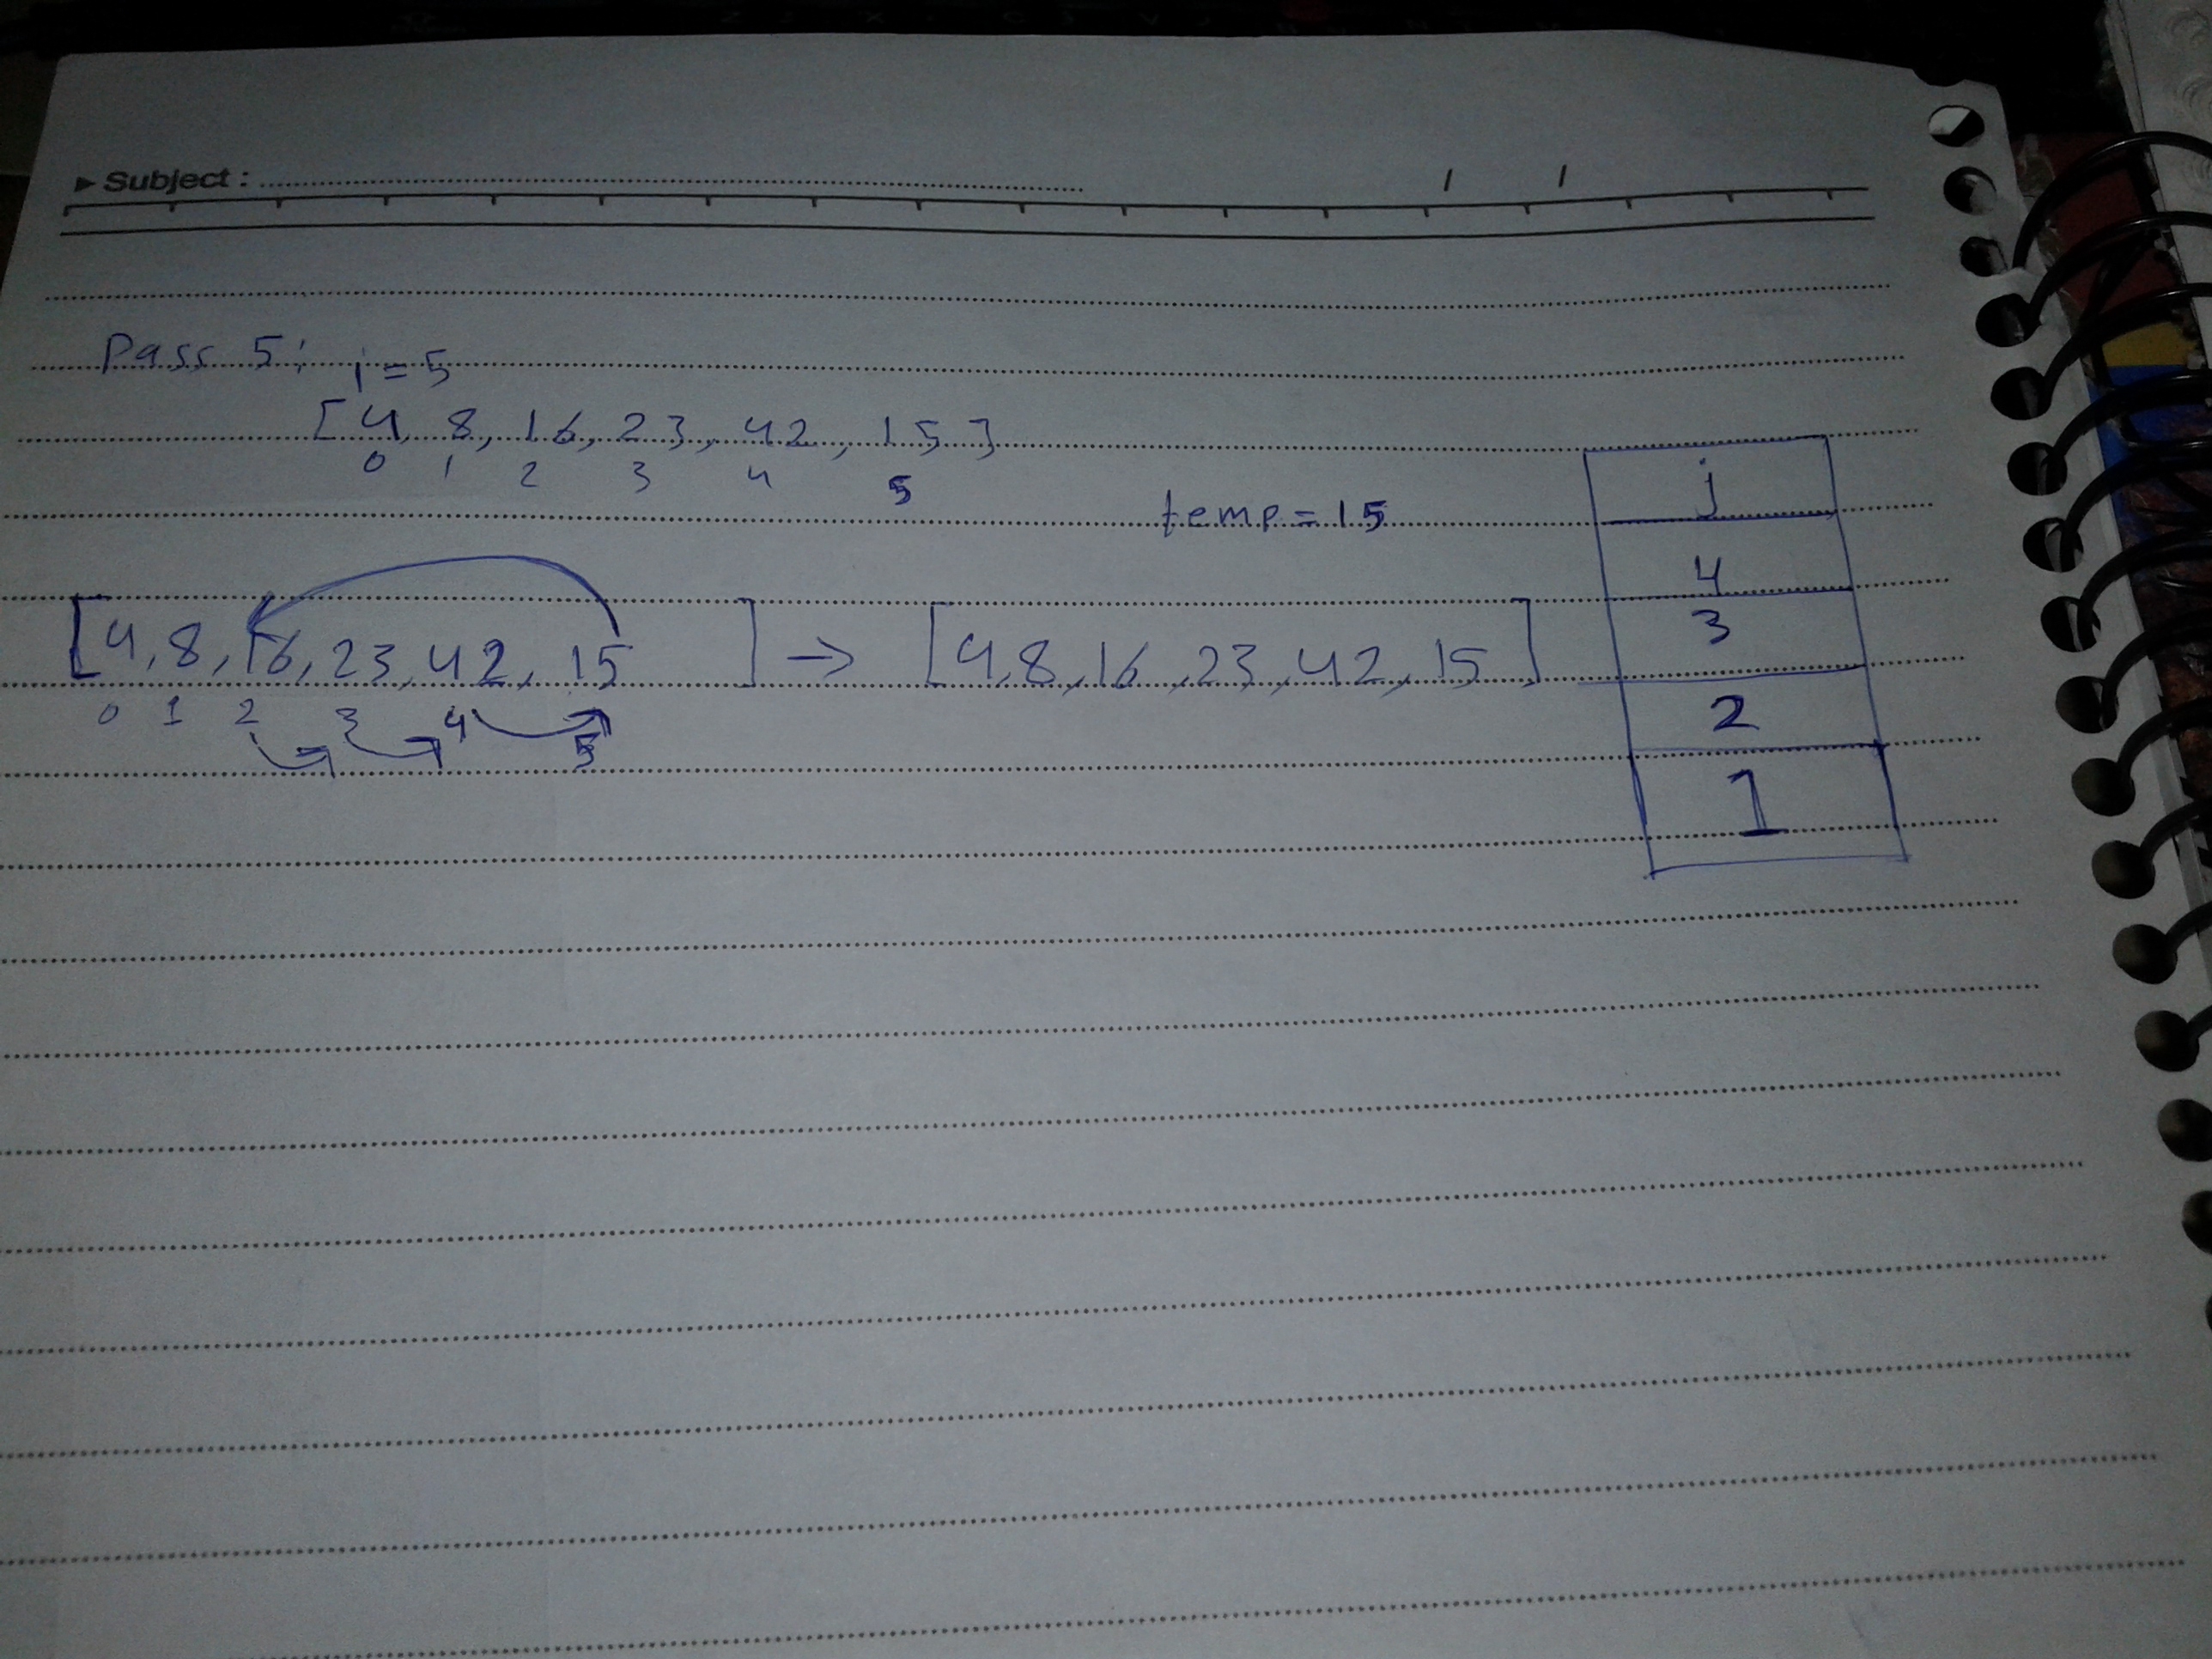 Subject :
/ /
Pass 5:
i = 5
[4, 8, 16, 23, 42, 15]
0 1 2 3 4 5
temp = 15
[4, 8, 16, 23, 42, 15 ] → [4, 8, 16, 23, 42, 15]
0 1 2 3 4 5
j
4
3
2
1